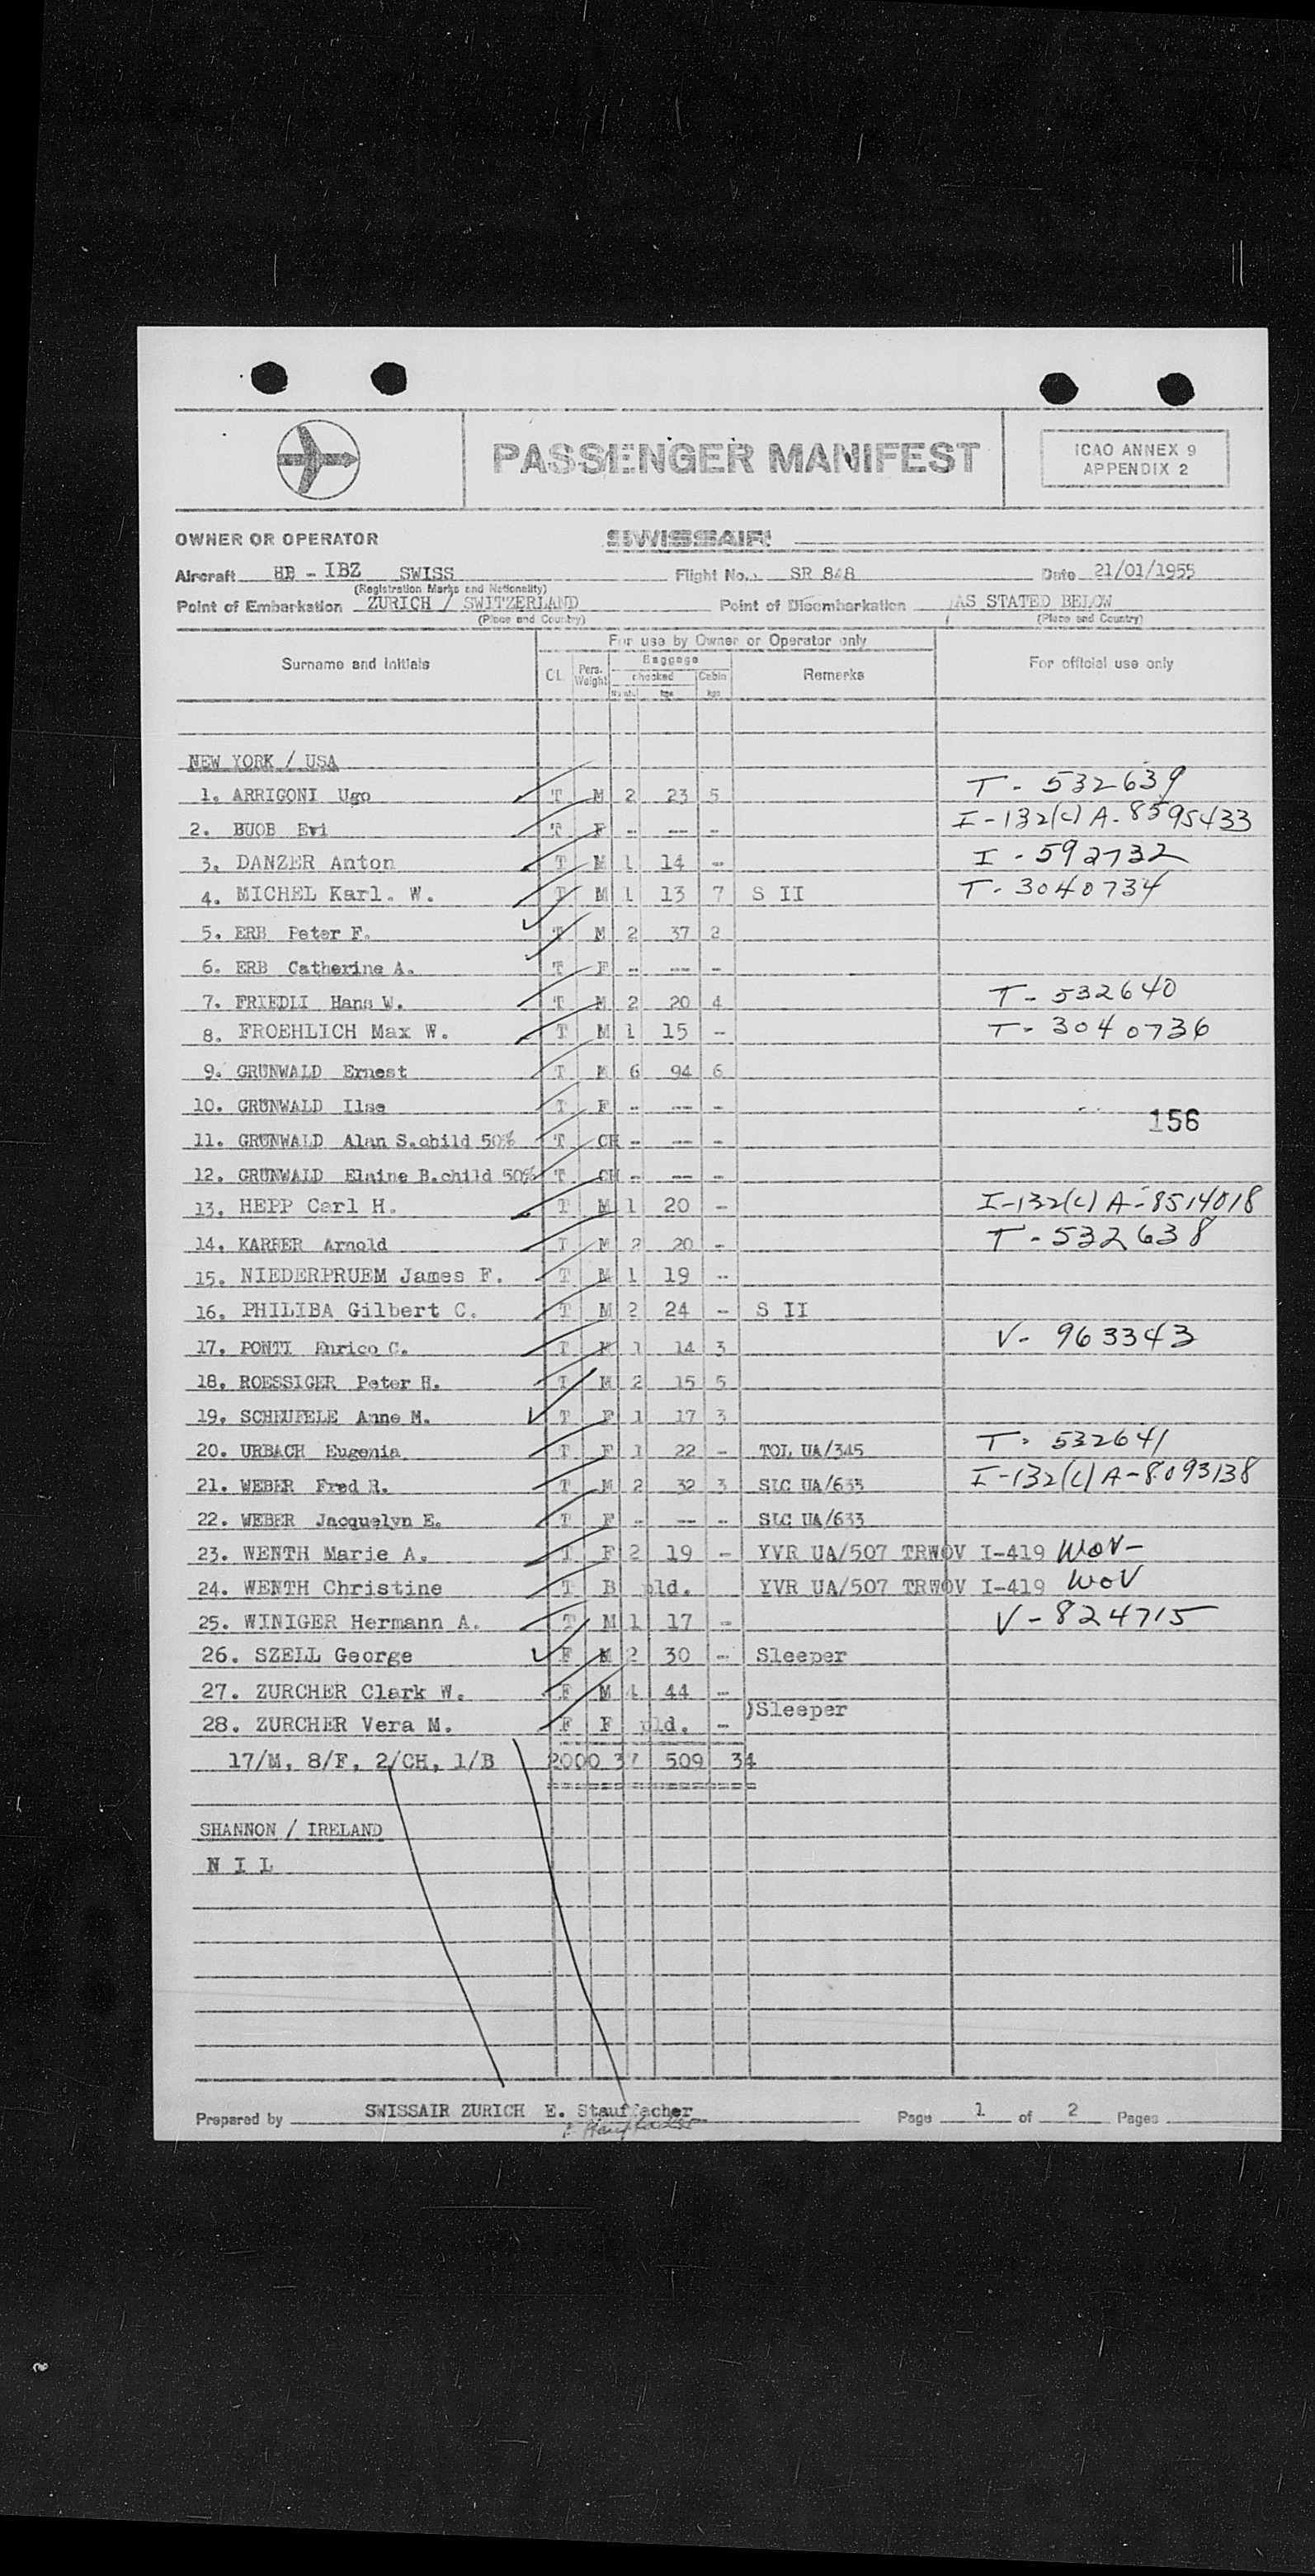 PASSENGER MANIFEST
ICAO ANNEX 9
APPENDIX 2
OWNER OR OPERATOR SWISSAIR
Aircraft HB - IBZ SWISS Flight No. SR 848 Date 21/01/1955
(Registration Marks and Nationality)
Point of Embarkation ZURICH / SWITZERLAND Point of Disembarkation AS STATED BELOW
(Place and Country) (Place and Country)
Surname and initials For use by Owner or Operator only For official use only
CL Pers. Weight Baggage checked Cabin Remarks
kgs kgs
NEW YORK / USA
1. ARRIGONI Ugo T M 2 23 5 T - 532639
2. BUOB Evi T F -- --- - I-132(c) A-8595433
3. DANZER Anton T M 1 14 - I - 592732
4. MICHEL Karl. W. T M 1 13 7 S II T - 3040734
5. ERB Peter F. T M 2 37 2
6. ERB Catherine A. T F -- --- -
7. FRIEDLI Hans W. T M 2 20 4 T - 532640
8. FROEHLICH Max W. T M 1 15 - T - 3040736
9. GRUNWALD Ernest T M 6 94 6
10. GRUNWALD Ilse T F -- --- -
156
11. GRUNWALD Alan S.child 50% T CH -- --- -
12. GRUNWALD Elaine B.child 50% T CH -- --- -
13. HEPP Carl H. T M 1 20 - I-132(c) A-8514018
14. KARRER Arnold T M 2 20 - T - 532638
15. NIEDERPRUEM James F. T M 1 19 --
16. PHILIBA Gilbert C. T M 2 24 - S II
17. PONTI Enrico C. T M 1 14 3 V - 963343
18. ROESSIGER Peter H. T M 2 15 5
19. SCHEUFELE Anne M. T F 1 17 3
20. URBACH Eugenia T F 1 22 - TOL UA/345 T - 532641
21. WEBER Fred R. T M 2 32 3 SLC UA/633 I-132(c) A-8093138
22. WEBER Jacquelyn E. T F -- --- -- SLC UA/633
23. WENTH Marie A. T F 2 19 - YVR UA/507 TRWOV I-419 WOV-
24. WENTH Christine T B pld. YVR UA/507 TRWOV I-419 WOV
25. WINIGER Hermann A. T M 1 17 - V - 824715
26. SZELL George F M 2 30 - Sleeper
27. ZURCHER Clark W. F M 4 44 -
)Sleeper
28. ZURCHER Vera M. F F pld. -
17/M, 8/F, 2/CH, 1/B 2000 37 509 34
SHANNON / IRELAND
N I L
Prepared by SWISSAIR ZURICH E. Stauffacher Page 1 of 2 Pages
E. Stauffacher